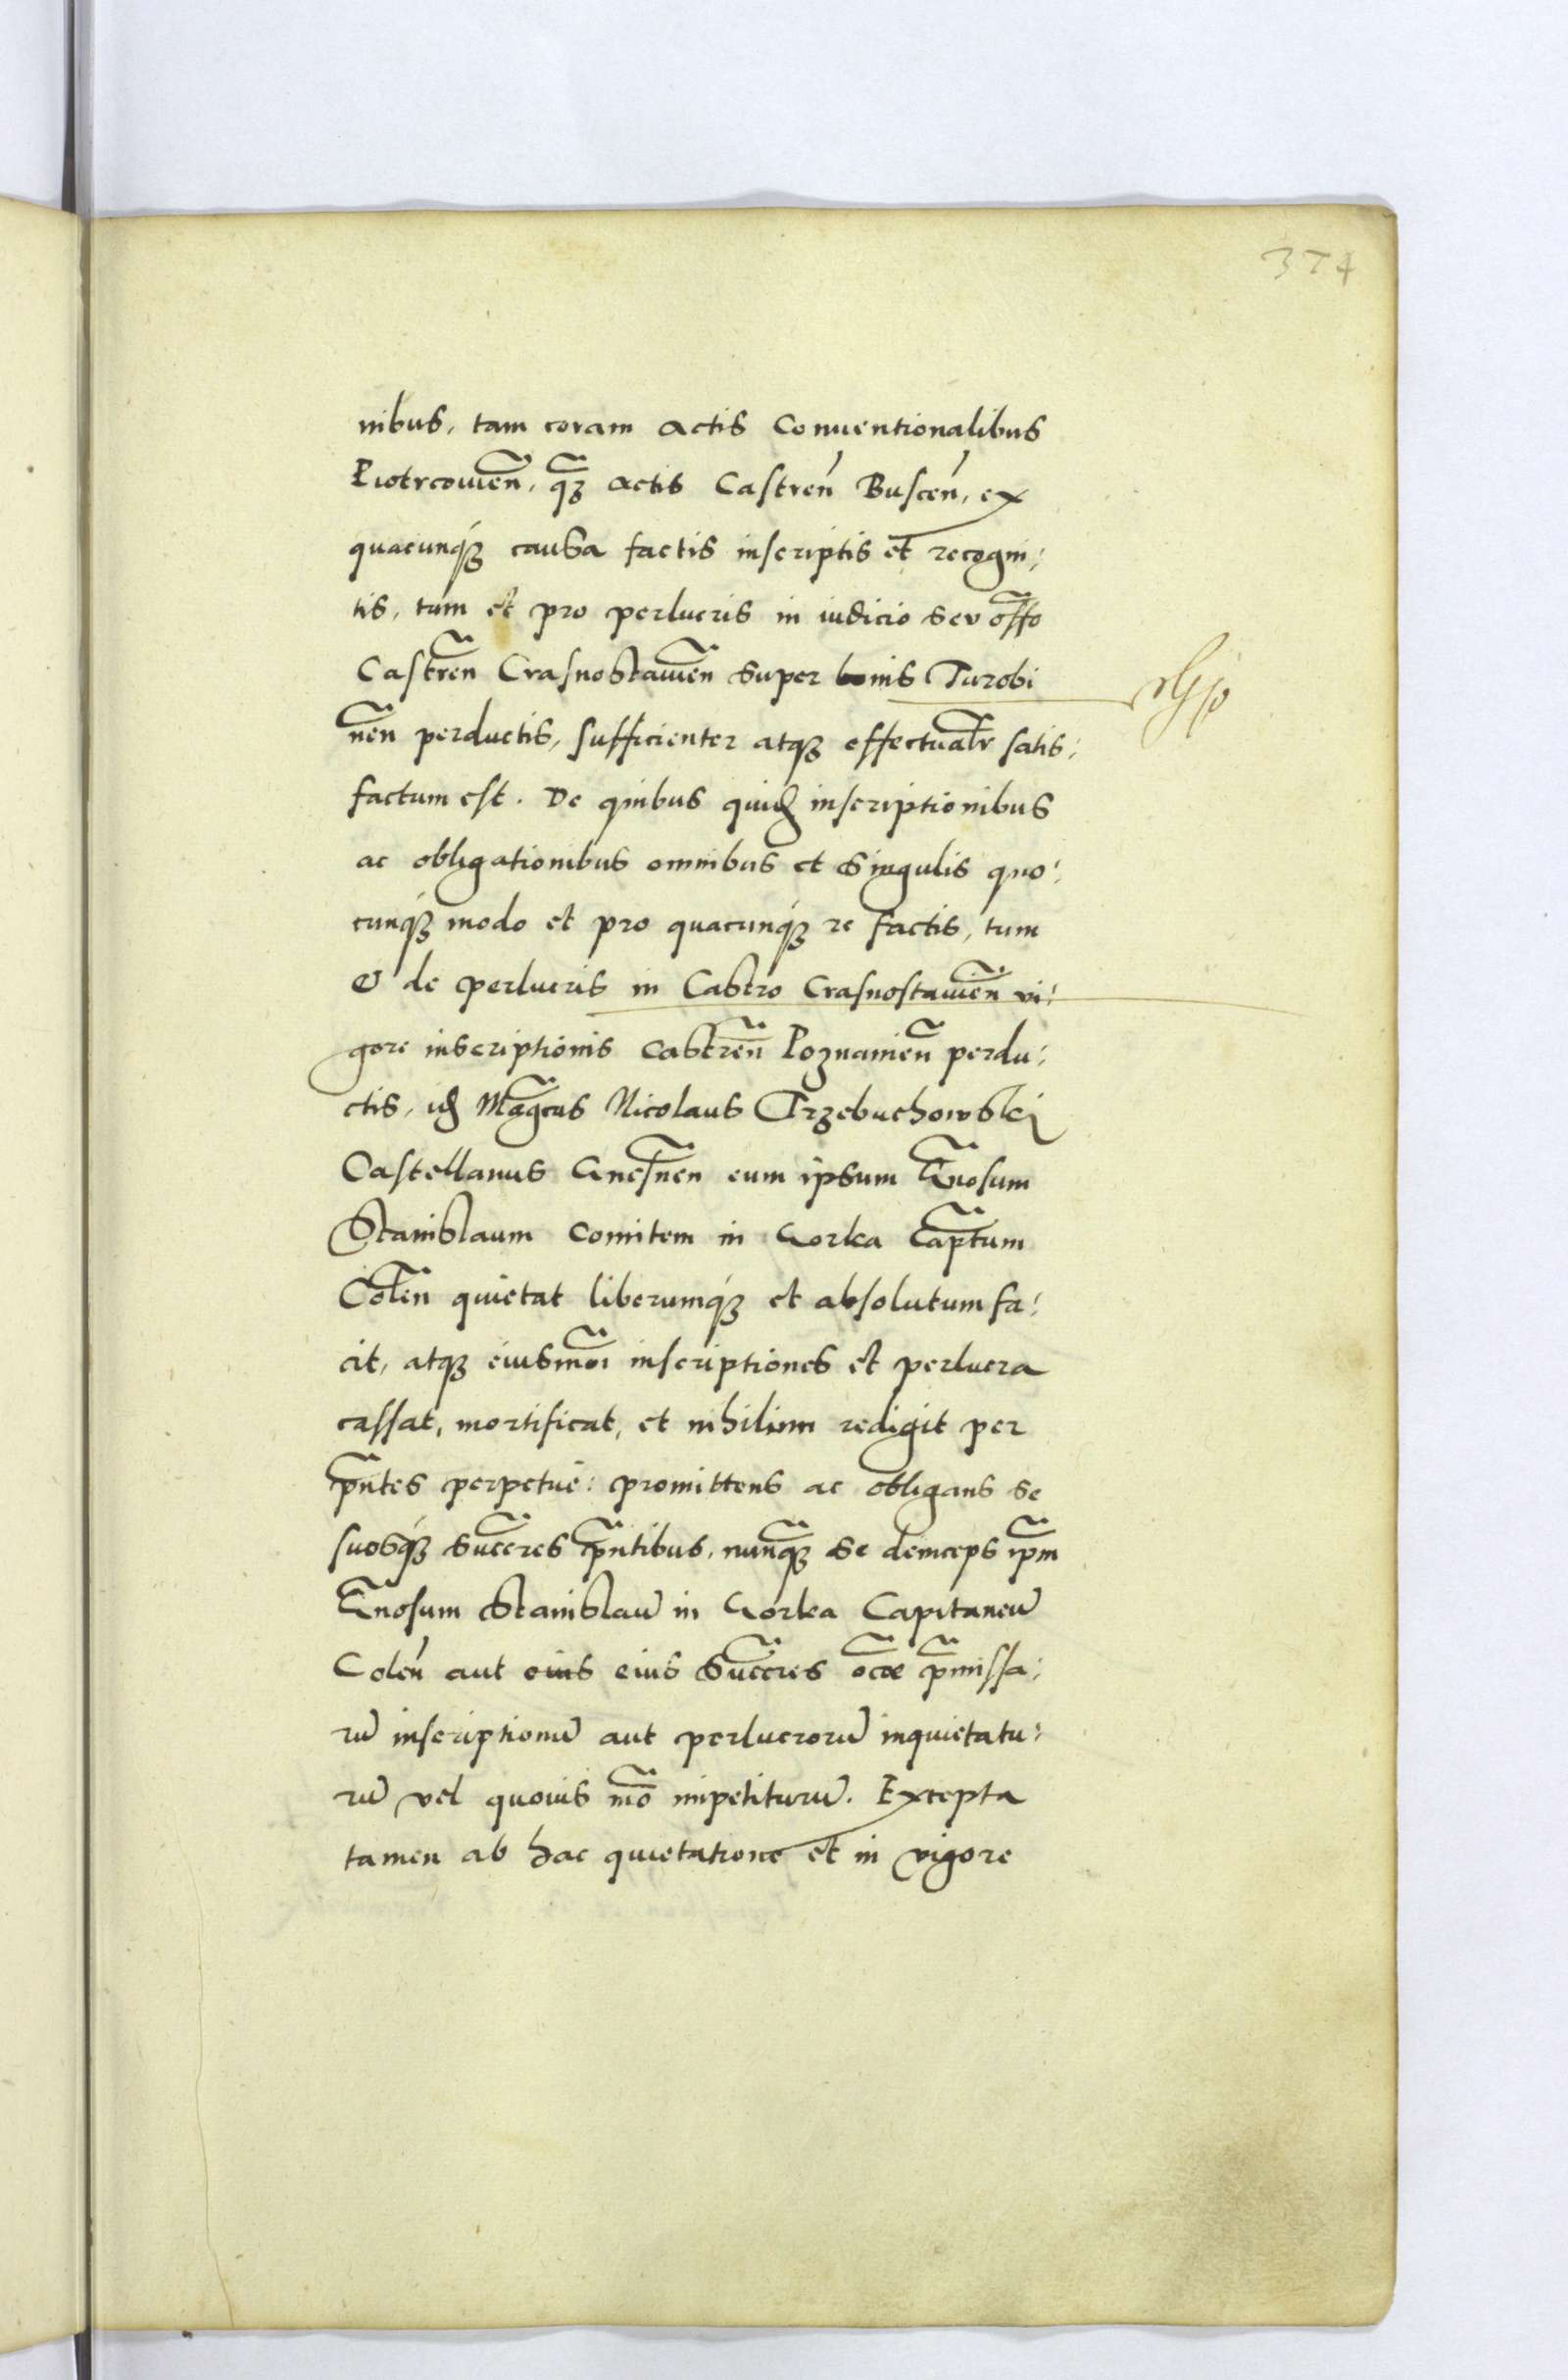 374
nibus, tam coram actis Conuentionalibus
Piotrcouien̄, q̄ꝫ actis Castren̄ Buscen̄, ex
quacunqꝫ causa factis inscriptis et recogni:
tis, tum et pro perlucris in iudicio seu off̄o
Castren̄ Crasnostauien̄ super bonis Turobi
nen̄ perductis, sufficienter atqꝫ effectualr̄ satis:
factum est. De quibus quid inscriptionibus
ac obligationibus omnibus et singulis quo:
cunqꝫ modo et pro quacunqꝫ re factis, tum
& de perlucris in Castro Crasnostauien̄ vi:
gore inscriptionis castren̄ Poznanien̄ perdu:
ctis, id Mag̅cus Nicolaus Trzebuchowski
Castellanus Gnesnen̄ eum ipsum G̅nosum
Stanislaum Comitem in Gorka Cap̅tum
Colen̄ quietat liberumqꝫ et absolutum fa:
cit, atqꝫ eiusmo̅i inscriptiones et perlucra
cassat, mortificat, et nihilum redigit per
pn̄tes perpetue: promittens ac obligans se
suosqꝫ succ̅res pn̄tibus, nunq̄ꝫ se deinceps ip̅m
G̅nosum Stanislaū in Gorka Capitaneū
Colen̄ aut eius succ̅res occ̅e p̅missa:
rū inscriptionū aut perlucrorū inquietatu:
rū vel quouis mo̅ impetiturū. Excepta
tamen ab hac quietatione et in vigore